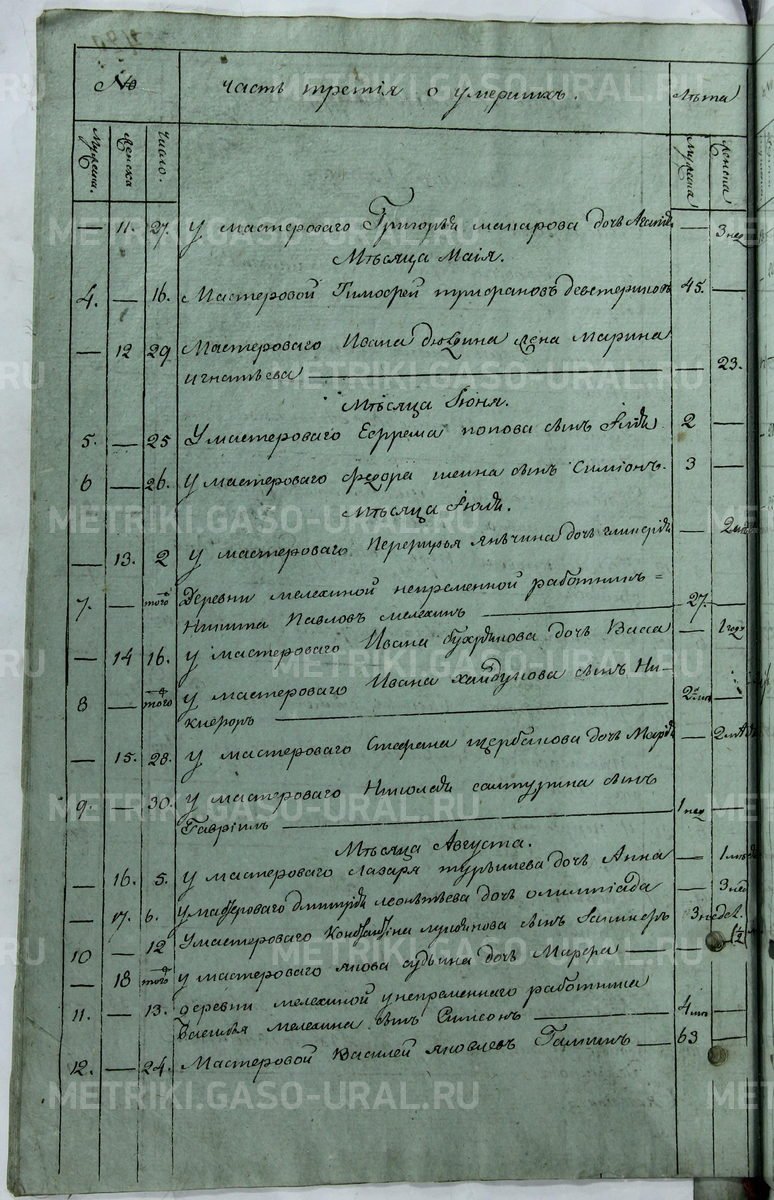 № часть третїя о умершихъ. Лѣта
Мужеска. Женска Число. Мужеска Женска
— 11. 27. У мастероваго Григорья макарова дочь — 3 нед
Мѣсяца Маїя.
4. — 16. Мастеровой Тимофей 45. —
— 12 29 Мастероваго Ивана жена Марина
игнатьева — — 23.
Мѣсяца Іюня.
5. — 25 У мастероваго Ефрема попова сынъ Илья 2 —
6 — 26. у мастероваго федора шеина сынъ Симїонъ. 3 —
Мѣсяца Іюля.
— 13. 2 у мастероваго дочь гликерїя — 2
7. — того Деревни мелехиной непременной работникъ=
Никита Павловъ мелехинъ — 27. —
— 14 16. у мастероваго Ивана дочь Васса — 1 году
8 — того у мастероваго Ивана хайдукова сынъ Ни-
кифоръ — 2 —
— 15. 28. у мастероваго Стефана щербакова дочь Марїя — 2
9. — 30. у мастероваго Николая сынъ
Гаврїилъ — 1 нед —
Мѣсяца Августа.
— 16. 5. у мастероваго Лазаря дочь Анна — 1
— 17. 6. у мастероваго дмитрїя леонтьева дочь олимпїада — 3 нед
10 — 12 У мастероваго Константина сынъ 3 недел. 1/2
— 18 того у мастероваго якова дочь Марфа —
11. — 13. деревни мелехиной у непременнаго работника
Василья мелехина сынъ Симеонъ — 4 —
12. — 24. Мастеровой Василей яковлевъ — 63 —
METRIKI.GASO-URAL.RU